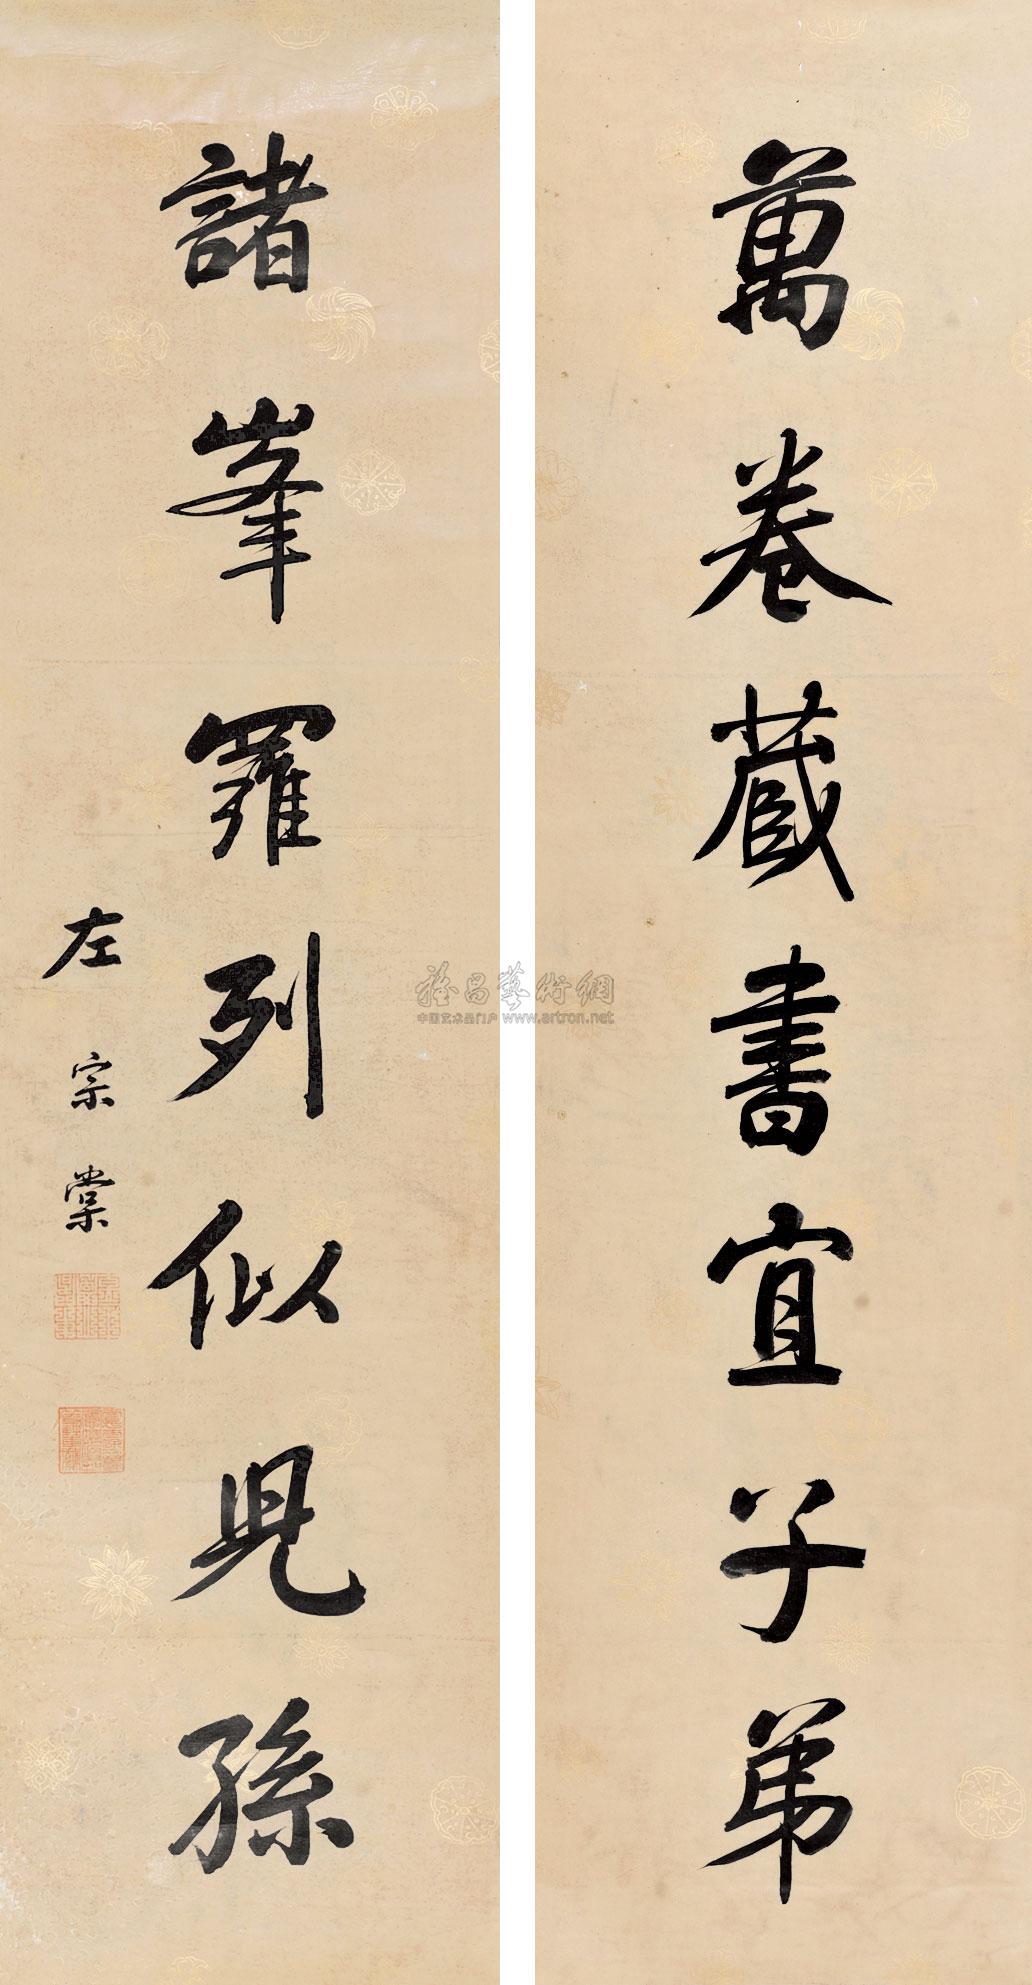 萬卷藏書宜子弟
諸峯羅列似兒孫
左宗棠
雅昌藝術網
中国艺术品门户 www.artron.net